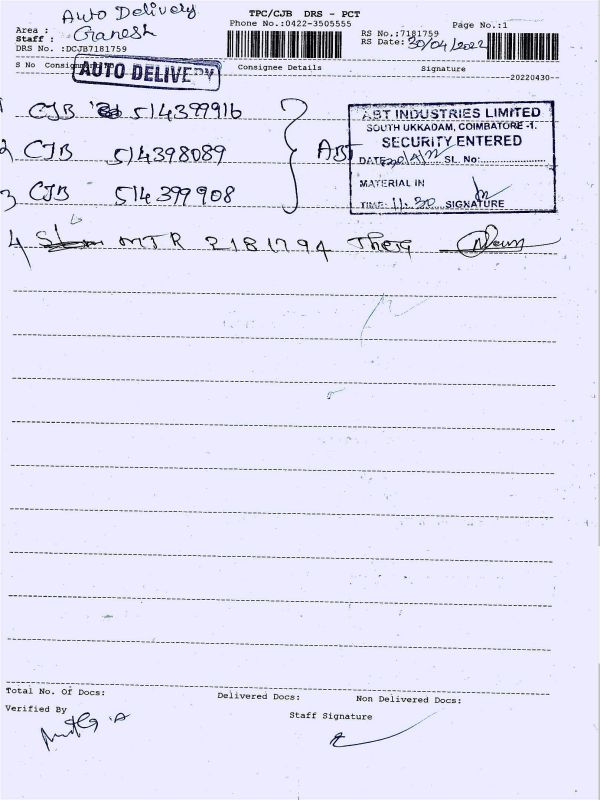 Auto Delivery
TPC/CJB DRS - PCT
Phone No.:0422-3505555
Page No.:1
Area :
Staff : Ganesh
RS No.:7181759
RS Date: 30/04/2022
DRS No. :DCJB7181759
S No Consignment
Consignee Details
Signature
AUTO DELIVERY
--20220430--
1 CJB 514399916
2 CJB 514398089
3 CJB 514399908
ABT
ABT INDUSTRIES LIMITED
SOUTH UKKADAM, COIMBATORE -1.
SECURITY ENTERED
DATE: 30/4/22 SL. No:
MATERIAL IN
TIME: 11.30 SIGNATURE
4 MTR 2181794
Total No. Of Docs:
Delivered Docs:
Non Delivered Docs:
Verified By
Staff Signature